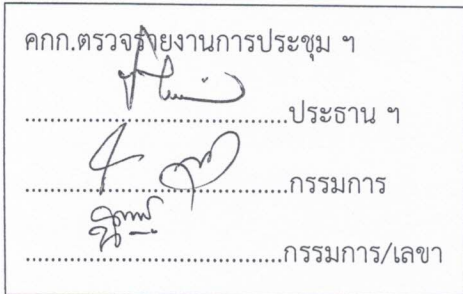 คกก.ตรวจรายงานการประชุม ฯ
................................ประธาน ฯ
................................กรรมการ
................................กรรมการ/เลขา